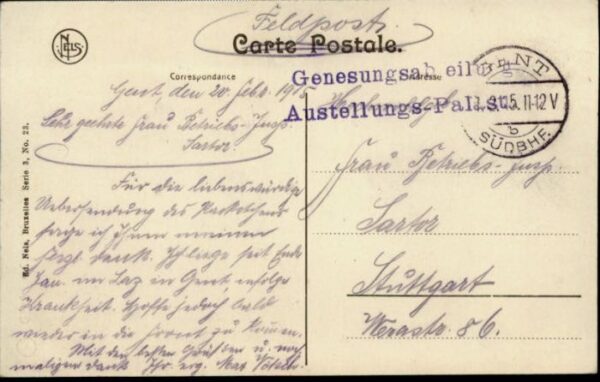 Feldpost.
NELS
Carte Postale.
Correspondance
Adresse
Genesungsabteilung
Austellungs-Pallast
GENT
15. 11-12 V
b
SÜDBHF.
Gent, den 20. Febr. 1915
Sehr geehrte Frau Betriebs-Insp.
Sartor.
Für die liebenswürdige
Uebersendung des
sage ich Ihnen meinen
herzl. Dank. Ich liege seit Ende
Jan. im Laz. in Gent, infolge
Krankheit. Hoffe jedoch bald
wieder in die Front zu kommen.
Mit den besten Grüssen u. noch
maligen Dank Ihr erg. Max
Frau Betriebs-Insp.
Sartor
Stuttgart
Werastr. 86.
Ed. Nels, Bruxelles Serie 3, No. 23.